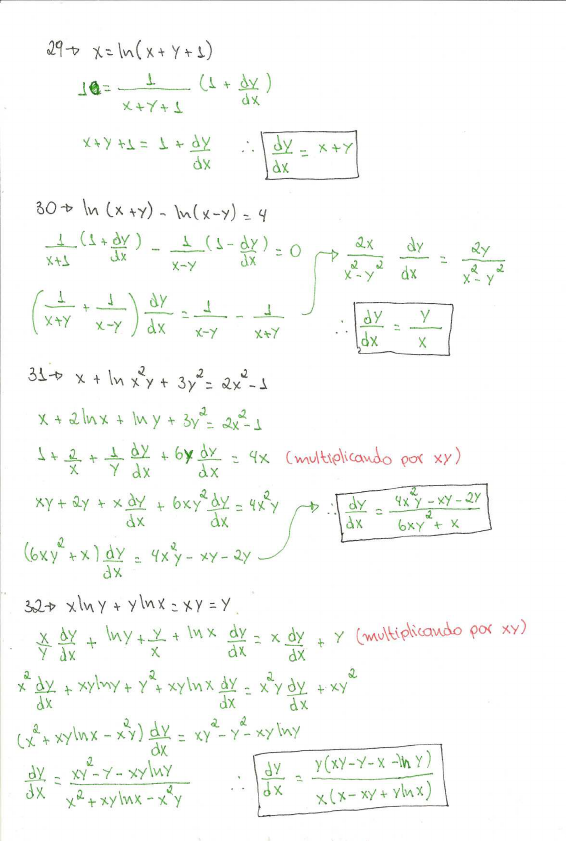 29→ x = ln(x + y + 1)
1 = 1/(x+y+1) (1 + dy/dx)
x+y+1 = 1 + dy/dx ∴ dy/dx = x+y
30→ ln(x+y) - ln(x-y) = 4
1/(x+1) (1 + dy/dx) - 1/(x-y) (1 - dy/dx) = 0 → 2x/(x²-y²) dy/dx = 2y/(x²-y²)
(1/(x+y) + 1/(x-y)) dy/dx = 1/(x-y) - 1/(x+y) ∴ dy/dx = y/x
31→ x + ln x²y + 3y² = 2x² - 1
x + 2lnx + lny + 3y² = 2x² - 1
1 + 2/x + 1/y dy/dx + 6y dy/dx = 4x (multiplicando por xy)
xy + 2y + x dy/dx + 6xy² dy/dx = 4x²y → ∴ dy/dx = (4x²y - xy - 2y)/(6xy² + x)
(6xy² + x) dy/dx = 4x²y - xy - 2y
32→ xlny + ylnx = xy = y
x/y dy/dx + lny + y/x + lnx dy/dx = x dy/dx + y (multiplicando por xy)
x² dy/dx + xylny + y² + xylnx dy/dx = x²y dy/dx + xy²
(x² + xylnx - x²y) dy/dx = xy² - y² - xylny
dy/dx = (xy² - y - xylny)/(x² + xylnx - x²y) ∴ dy/dx = y(xy - y - x - ln y)/x(x - xy + ylnx)